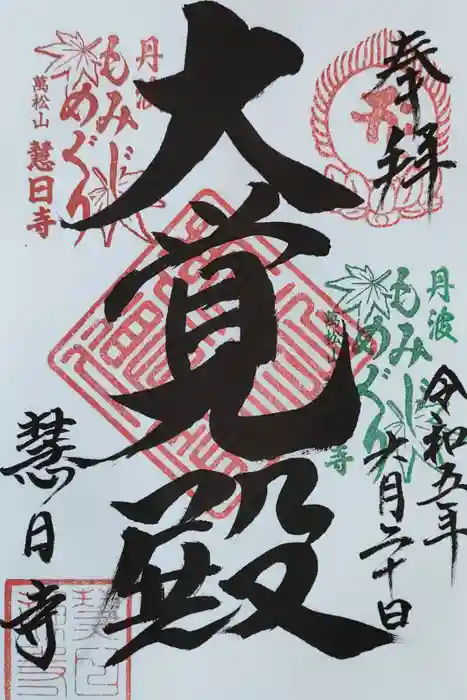 奉拝
丹波
もみじ
めぐり
萬松山
寺
令和五年
六月二十日
大覚殿
丹波
もみじ
めぐり
萬松山
慧日寺
慧日寺